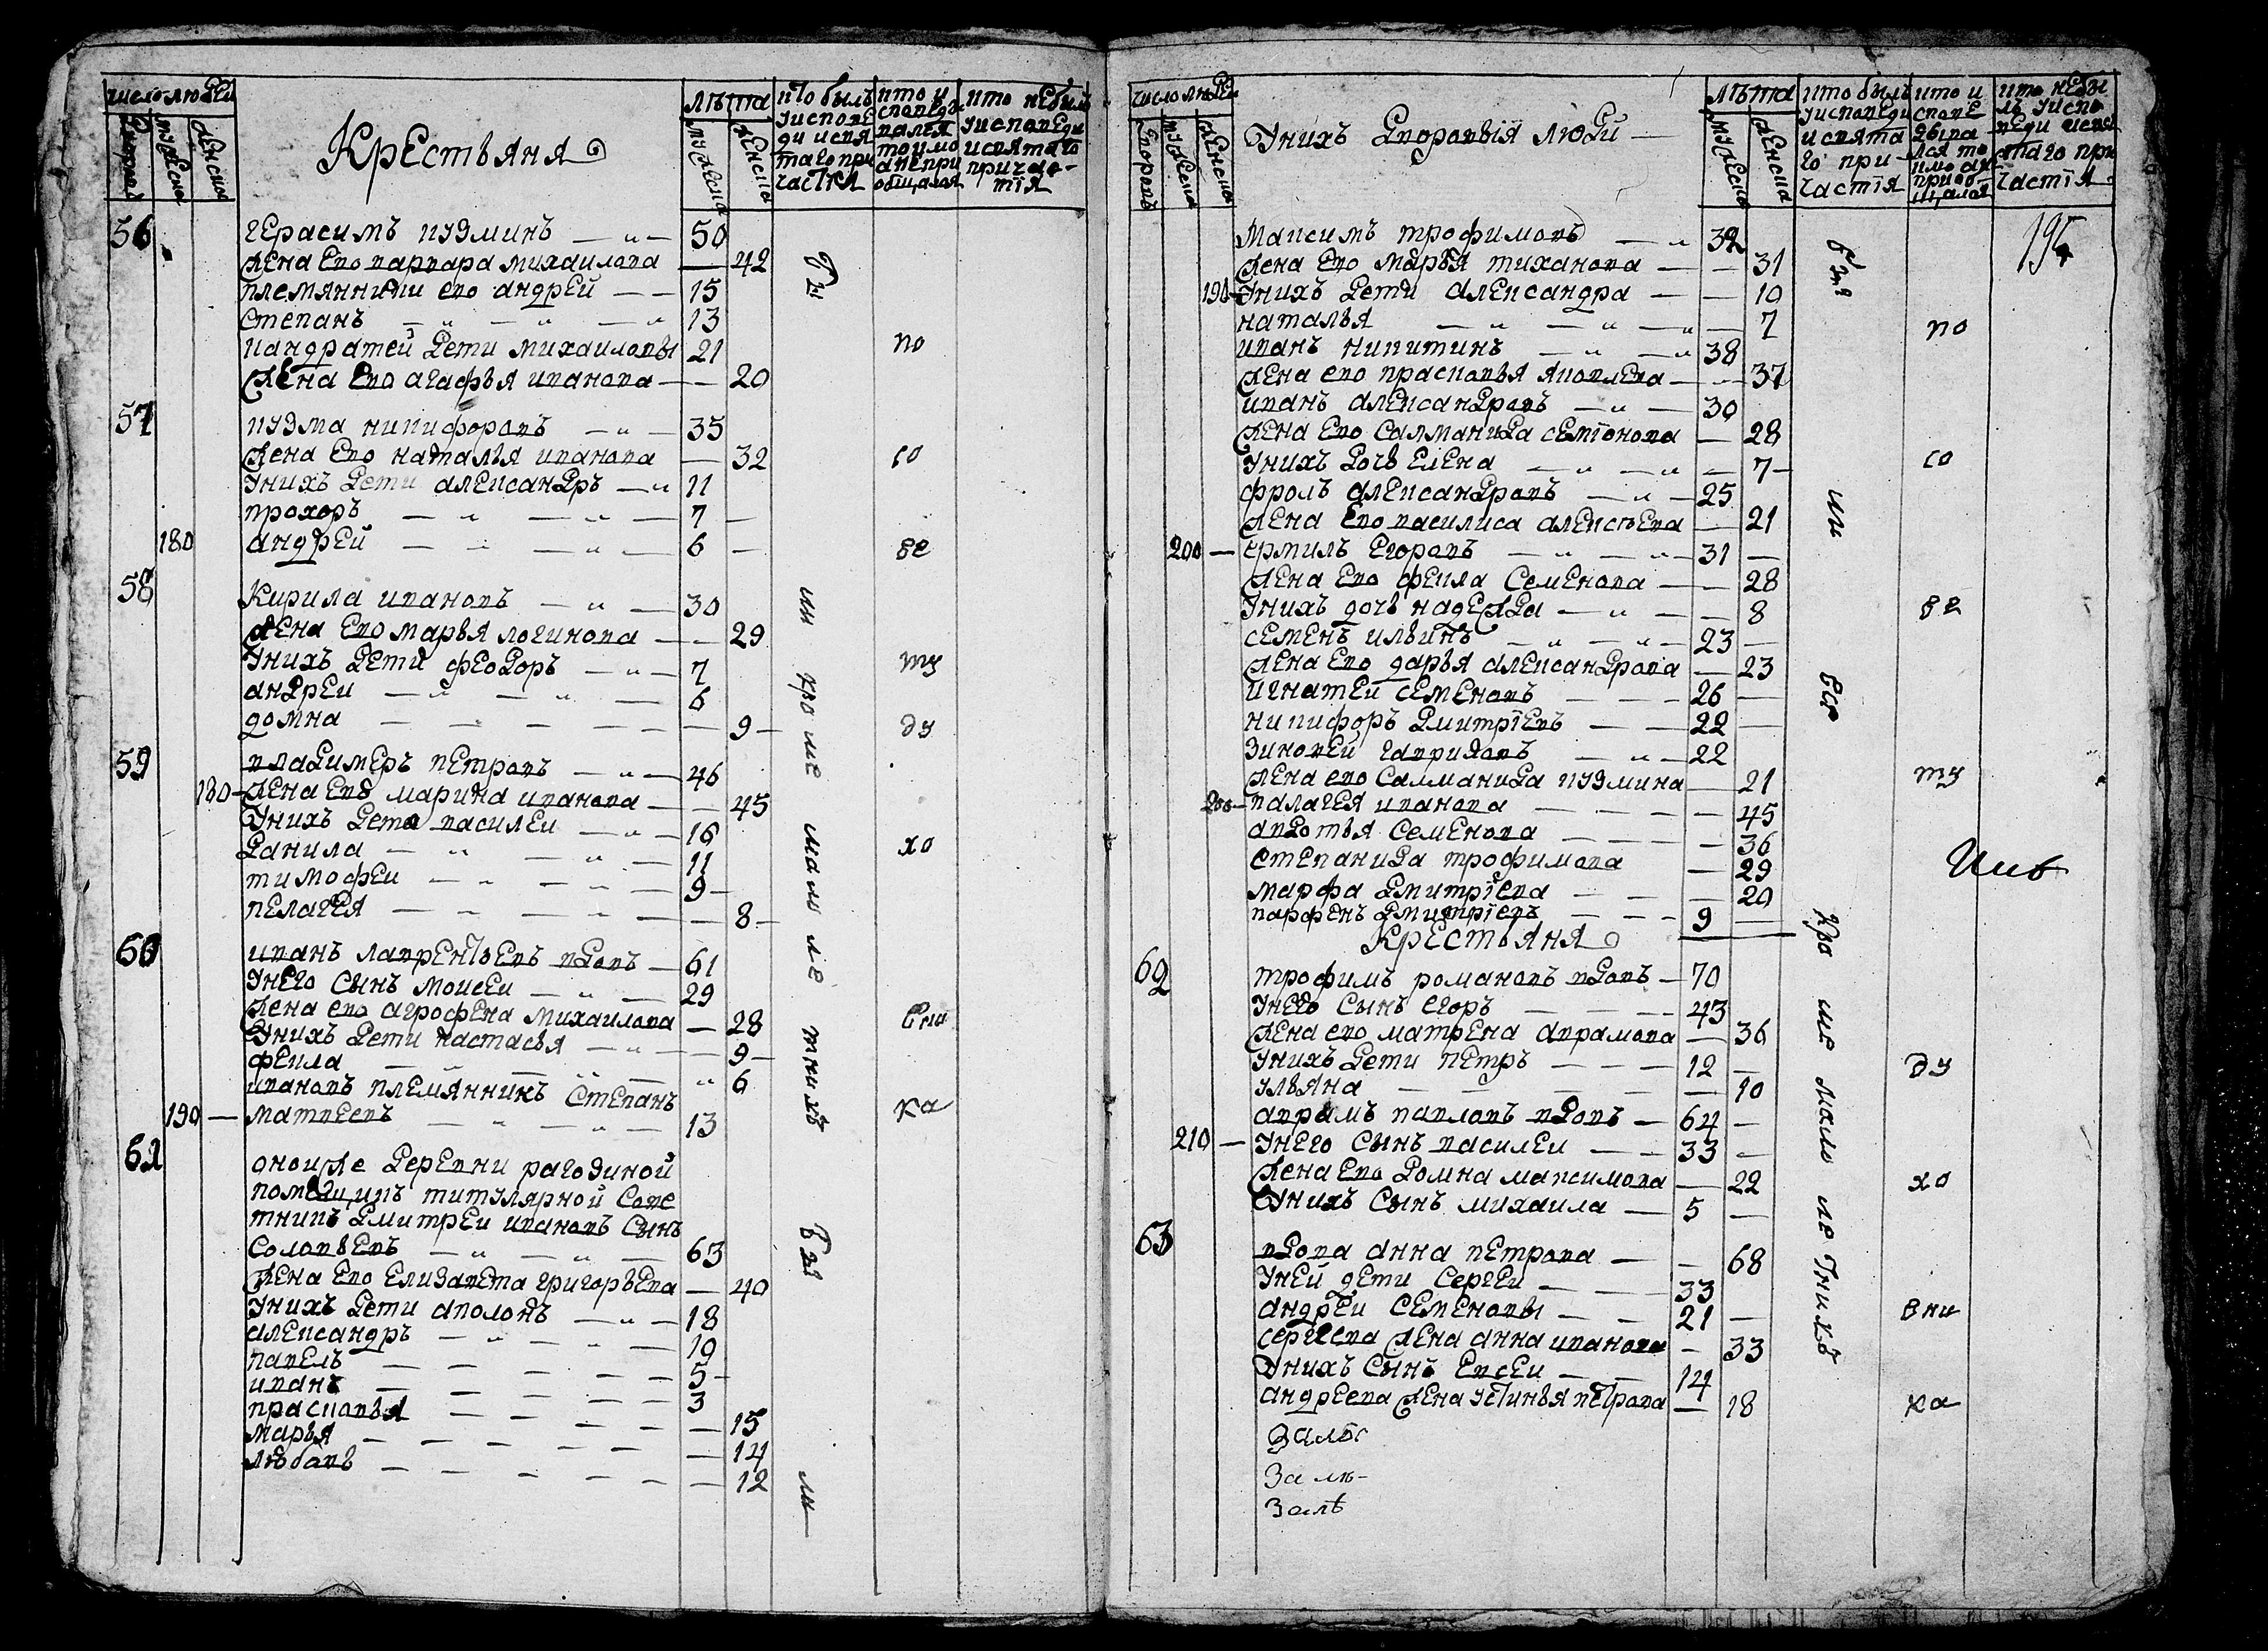 число людей
Дворовъ
мужеска
женска
Крестьяня
лѣта
мужеска
женска
кто былъ
уисповѣ
ди исвя
таго при
частия
кто и
споведы
вался
тоимо
анепри
общался
кто небылъ
уисповеди
исвятаго
причас-
тїя
56
Герасимъ кузминъ — „ — 50
жена ево варвара михаилова — 42
племянники ево андрей — — 15
Степанъ — „ — „ — „ 13
кандратей дети михаиловы 21
жена ево агафья иванова — — 20
57
кузма никифоровъ — „ — 35
жена ево наталья иванова — 32
унихъ дети александръ — „ 11
прохоръ — „ — „ — 7 —
180 андрей — „ — „ — 6 —
58
Кирила ивановъ — „ — 30
жена ево марья логинова — — 29
унихъ дети феодоръ — „ — 7
андреи — „ — „ — 6
домна — — — — — — 9 —
59
владимеръ петровъ — „ — 46
180 — жена ево марина иванова — — 45
унихъ дети василеи — „ — 16
данила — „ — „ — 11
тимофеи — „ — „ — 9 —
пелагея — „ — „ — — 8 —
60
иванъ лаврентьевъ вдовъ — 61
унего сынъ моисеи — „ — 29
жена ево агрофена михаилова — 28
унихъ дети настасья — „ — — 9 —
феила — „ — „ — „ 6
ивановъ племянникъ Степанъ
190 — матвеевъ — „ — „ — 13
61
оноиже деревни рагозиной
помещикъ титулярной сове
тникъ дмитреи ивановъ сынъ
соловьевъ — „ — „ — 63
жена ево елизавета григорьева — 40
унихъ дети аполонъ — „ — 18
александръ — „ — „ — 10
павелъ — — — — — 5 —
иванъ — — — — — 3
прасковья — — — — — 15
марья — — — — — — 14
любовь — — — — — — 12
бы
ли
кро ме
мало ле тнихъ
бы
ли
по
со
бе
ту
ду
хо
вни
ка
число людей
Дворовъ
мужеска
женска
Унихъ Дворовыя люди —
лѣта
мужеска
женска
кто былъ
уисповеди
исвята
го при-
частїя
кто и
спове
дыва-
лся то
имо ане
приоб
щался
кто небы
лъ уиспо
веди исвя
таго при
частїя
194
Максимъ трофимовъ — „ 32
жена ево марья тиханова — — 31
190 — Унихъ дети александра — — 10
наталья — „ — „ — „ — 7
иванъ никитинъ — „ — „ 38
жена ево прасковья яковлева — — 37
иванъ александровъ — „ — 30
жена ево салманида семїонова — 28
Унихъ дочь елена — „ — „ — 7 —
фролъ александровъ — „ — 25
жена ево василиса алексѣева — 21
200 — ермилъ егоровъ — „ — „ — 31 —
жена ево феила Семенова — — 28
Унихъ дочь надежда — „ — — 8
семенъ ильинъ — „ — „ — 23 —
жена ево дарья александрова — 23
игнатеи семеновъ — — — 26 —
никифоръ дмитрїевъ — — 22 —
зиновеи гавриловъ — „ — 22
жена ево салманида кузмина — 21
200 — палагея иванова — — — — 45
авдотья Семенова — — — — 36
степанида трофимова — 29
марфа дмитрїева — — — 20
парфенъ дмитрїевъ — — — 9 —
Крестьяня
62
трофимъ романовъ вдовъ — 70
унего сынъ егоръ — — — 43
жена ево матрена аврамова — 36
унихъ дети петръ — — — 12 —
ульяна — — — — — 10
аврамъ павловъ вдовъ — 64 —
210 — унего сынъ василеи — — 33 —
жена ево домна максимова — 22
Унихъ сынъ михаила — 5 —
63
вдова анна петрова — — 68
уней дети сергеи — — — 33
андреи семеновы — — 21 —
сергеева жена анна иванова — 33
Унихъ сынъ евсеи — — 14
андреева жена устинья петрова — 18
бы
ли
все
кро ме мало ле тнихъ
по
со
бе
ту
ду
хо
вни
ка